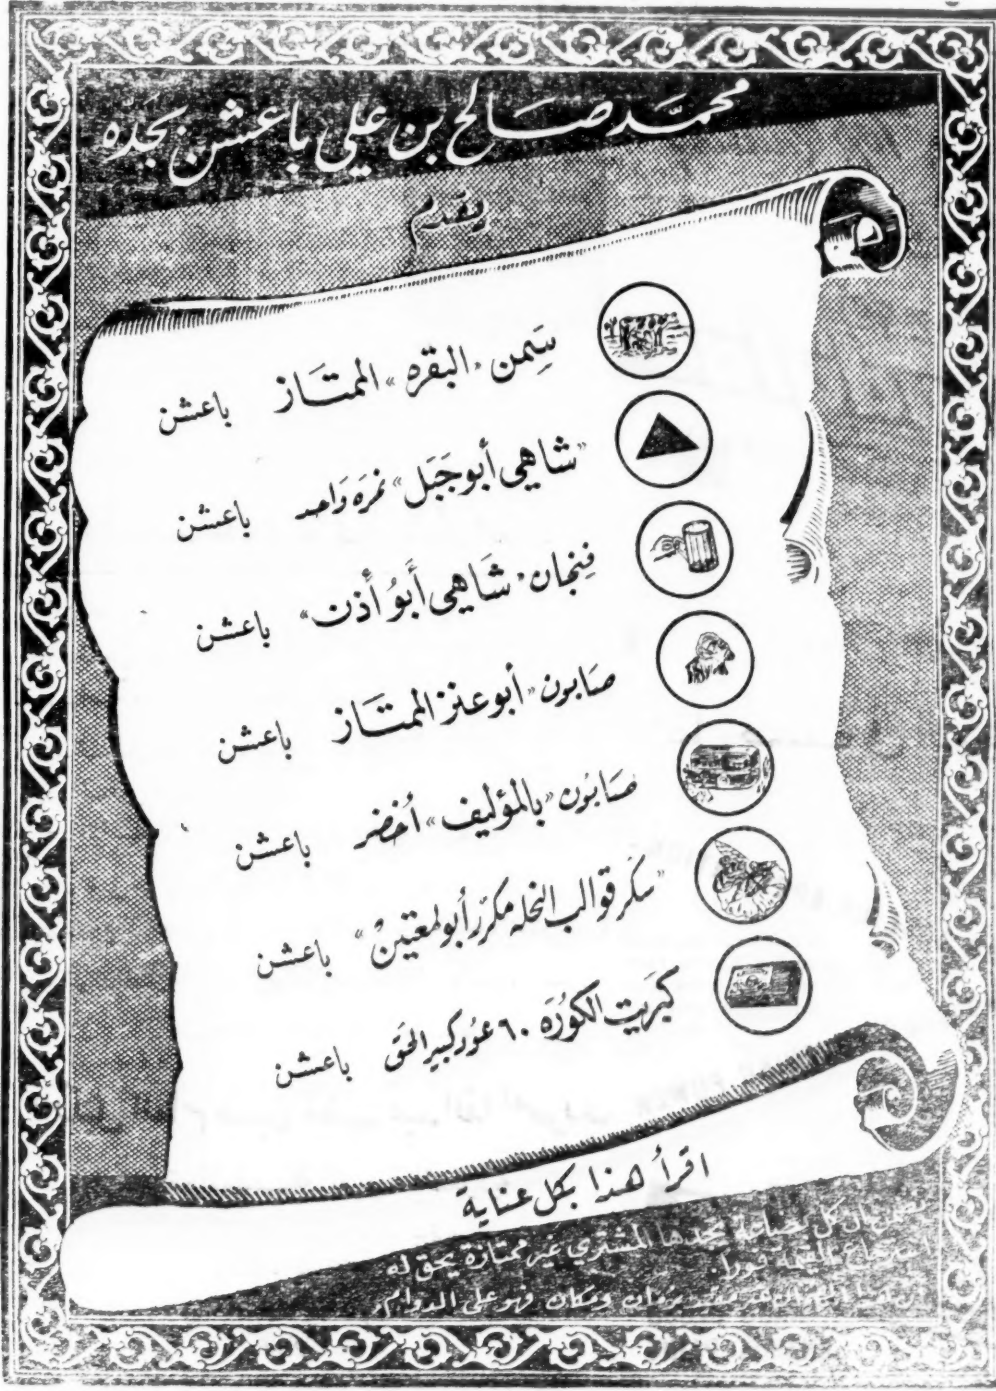 محمد صالح بن علي باعشن بجده
يقدم
سمن «البقره» الممتاز باعشن
«شاهي أبو جبل» نمره واحد باعشن
فنجان «شاهي أبو أذن» باعشن
صابون «أبو عنز الممتاز باعشن
صابون «بالمؤليف» أخضر باعشن
«سكر قوالب النخله مكرر أبو لمعتين» باعشن
كبريت الكوره ٦٠ عود كبير الحق باعشن
اقرأ هذا بكل عناية
بان كل بضاعة يجدها المشتري غير ممتازة يحق له
فورا.
بزمان ومكان فهو على الدوام